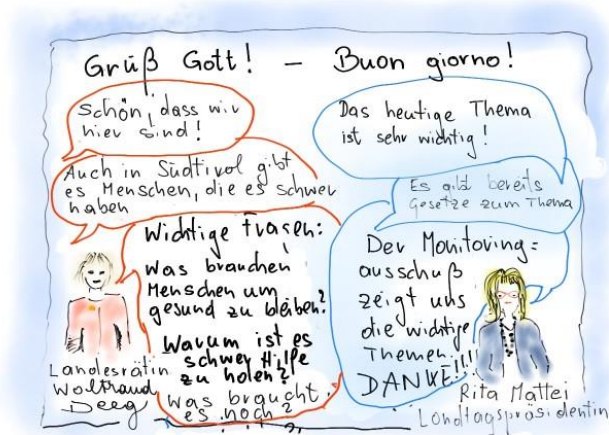 Grüß Gott! – Buon giorno!
Schön, dass wir
hier sind!
Auch in Südtirol gibt
es Menschen, die es schwer
haben
Wichtige Fragen:
Was brauchen
Menschen um
gesund zu bleiben?
Warum ist es
schwer Hilfe
zu holen?
Was braucht
es noch?
Landesrätin
Waltraud
Deeg
Das heutige Thema
ist sehr wichtig!
Es gibt bereits
Gesetze zum Thema
Der Monitoring=
ausschuß
zeigt uns
die wichtige
Themen.
DANKE!!!!
Rita Mattei
Landtagspräsidentin